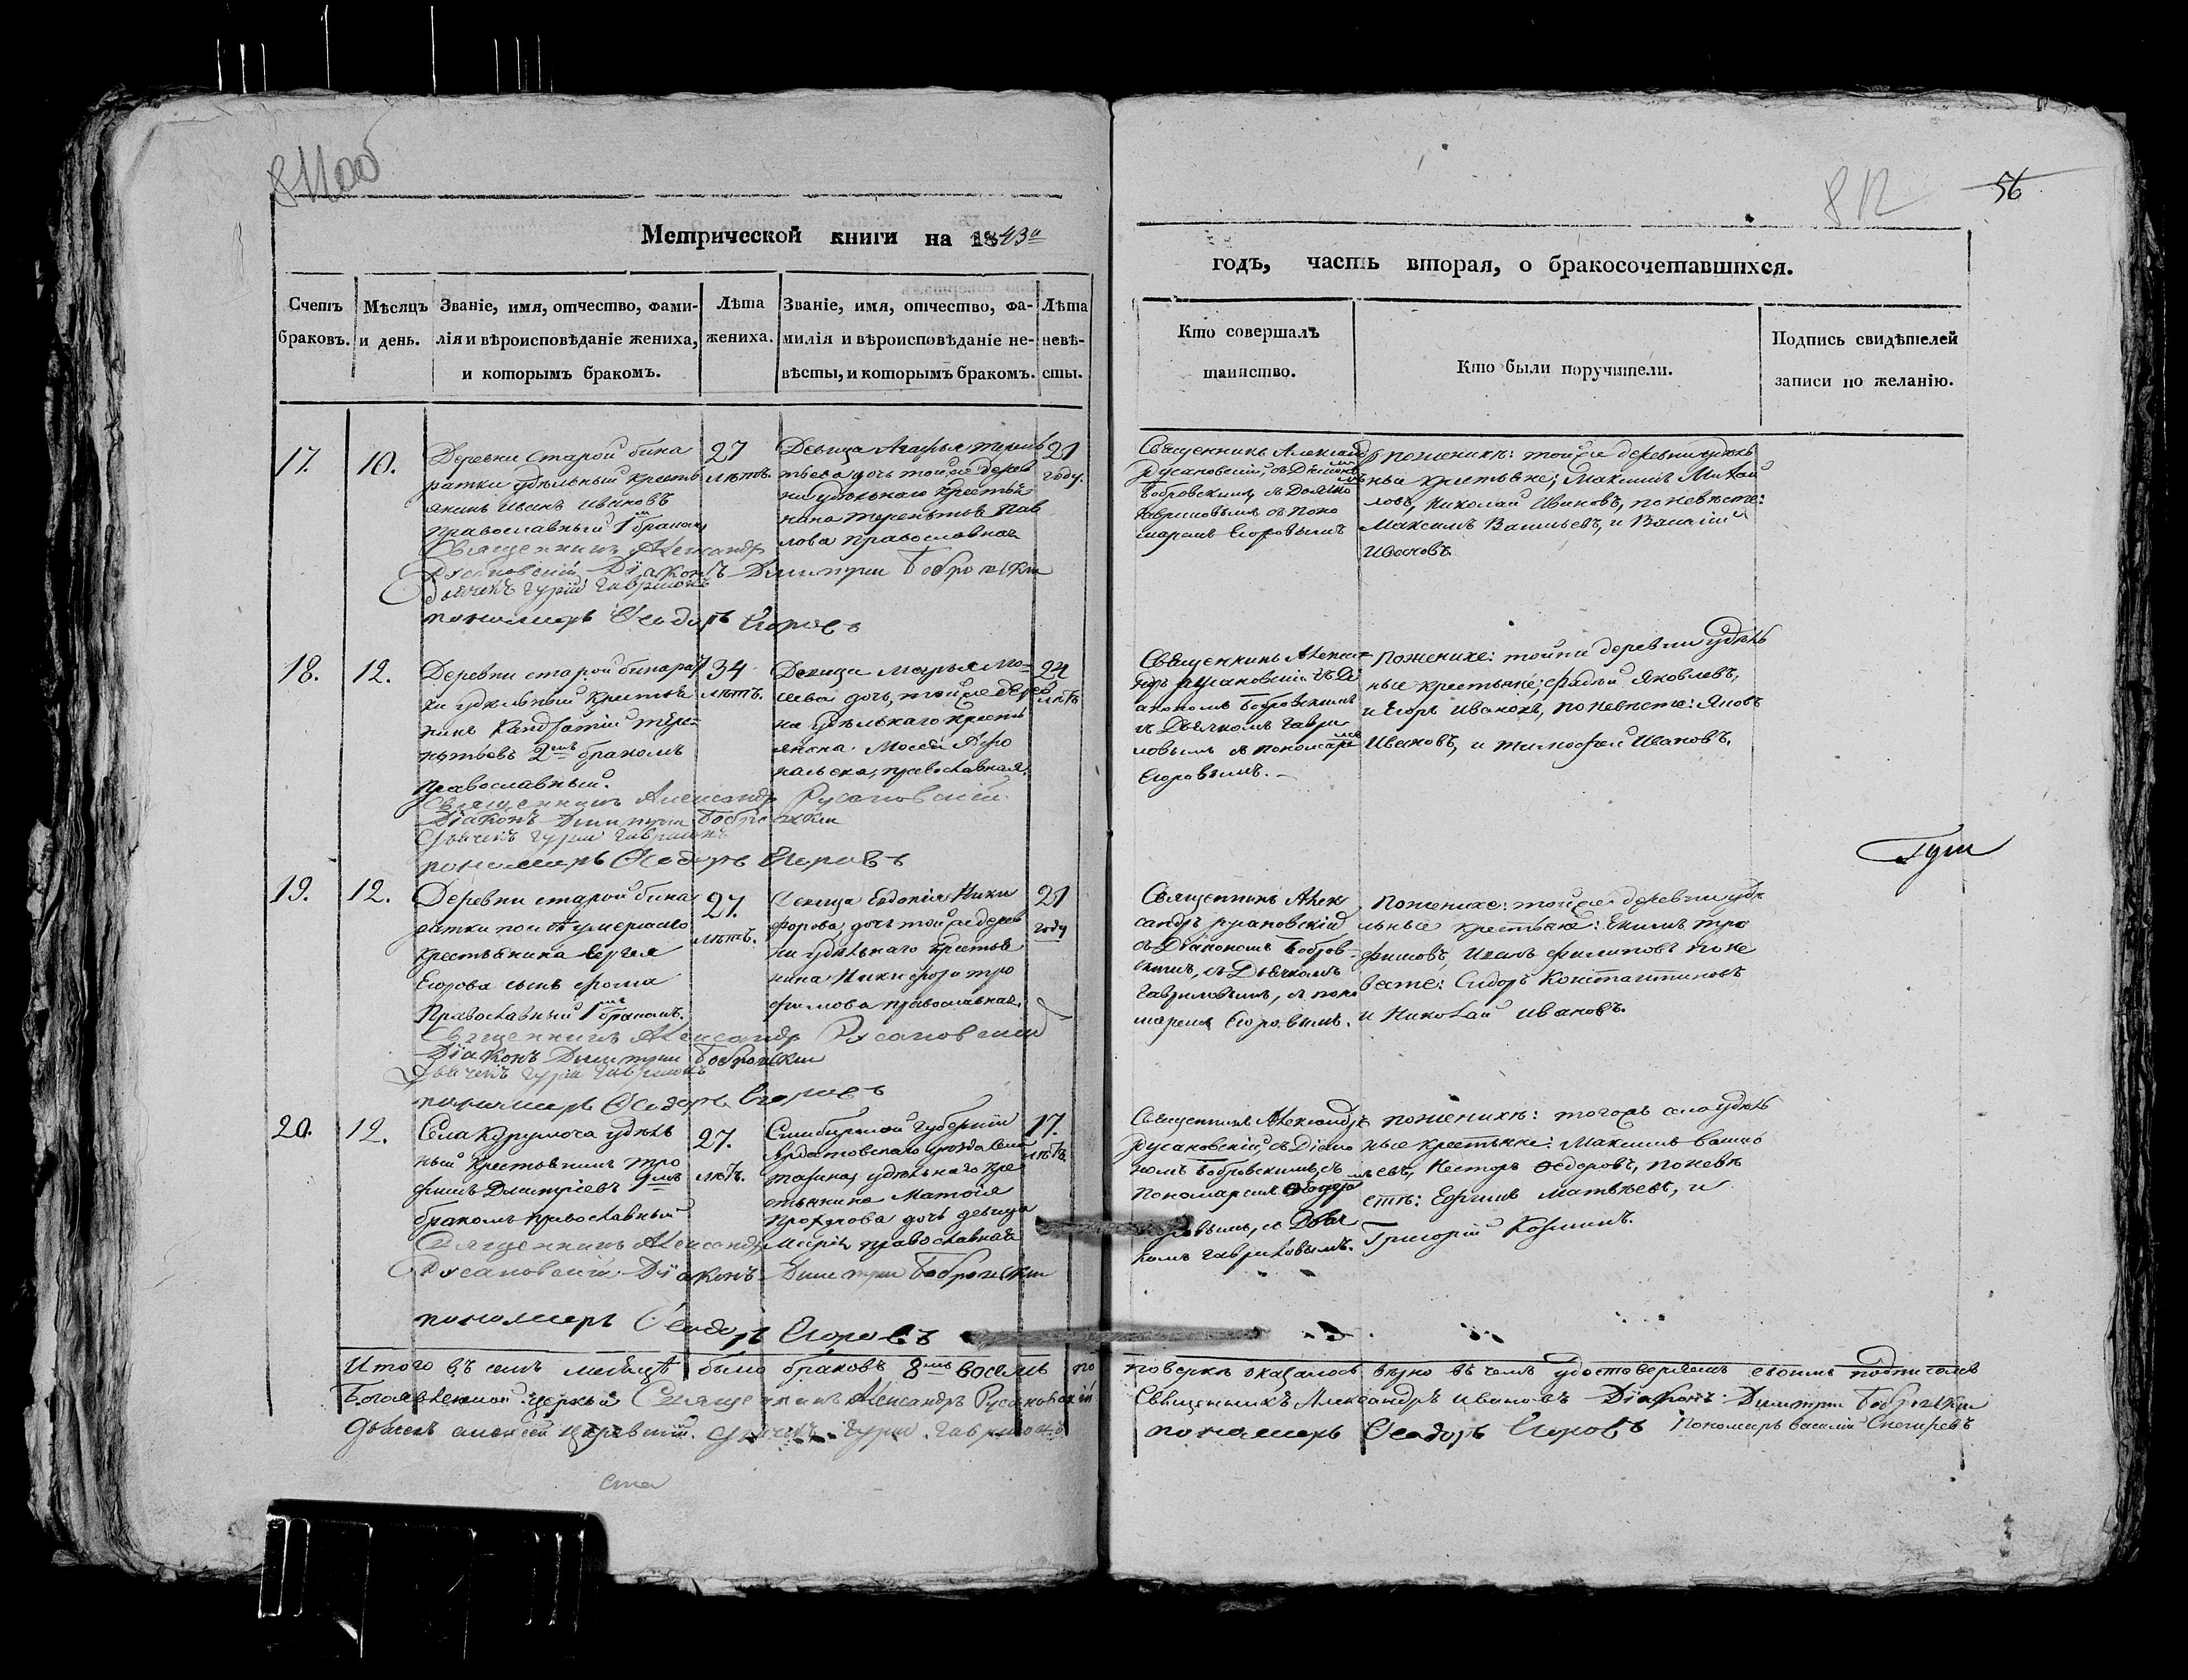 811об
812
56
Метрической книги на 1843й
годъ, часть вторая, о бракосочетавшихся.
Счетъ браковъ.
Мѣсяцъ и день.
Званіе, имя, отчество, фами-
лія и вѣроисповѣданіе жениха,
и которымъ бракомъ.
Лѣта
жениха.
Званіе, имя, отчество, фа-
милія и вѣроисповѣданіе не-
вѣсты, и которымъ бракомъ.
Лѣта
невѣ-
сты.
Кто совершалъ
таинство.
Кто были поручители.
Подпись свидѣтелей
записи по желанію.
17.
10.
Деревни Старой бина
ратки удѣльный кресть
янинъ Иванъ Ивановъ
православный 1м бракомъ
27
лѣтъ.
Девица Агафья Терень
тьева дочь той же дерев
ни удѣльнаго кресть
янина Терентья Пав
лова православная
21
году.
Священникъ Александръ
Русановскій, съ Діакономъ
Бобровскимъ, съ Дьячко
Гавриловымъ съ поно
маремъ Егоровымъ
По женихѣ: той же деревни удѣль
ные крестьяне; Максимъ Михай
ловъ, Николай Ивановъ, по невѣсте:
Максимъ Васильевъ, и Василій
Ивановъ.
Священникъ Александръ
Русановскій Діаконъ Димитрій Бобровскій
Дьячекъ Гурій Гавриловъ
пономарь Ѳеодоръ Егоровъ
18.
12.
Деревни старой бинарат
ки удѣльный крестья
нинъ
тере-
нтьевъ 2мъ бракомъ
православный.
34
лѣтъ.
Девица Марья Мо-
сева дочь, той же дерев
ни удѣльнаго кресть
янина Мосея Афо
насьева, православная.
24
лѣтъ
Священникъ Алексан-
дръ Русановскій съ Ді
акономъ Бобровскимъ
съ Дьячкомъ Гаври
ловымъ съ пономаремъ
Егоровымъ. -
По женихе: той же деревни удѣль
ные крестьяне; Фадѣй Яковлевъ,
и Егоръ Ивановъ, по невѣсте: Яковъ
Ивановъ, и Тимофей Ивановъ.
Священникъ Александръ Русановскій
Діаконъ Димитрій Бобровскій
Дьячекъ Гурій Гавриловъ
пономарь Ѳеодоръ Егоровъ
19.
12.
Деревни старой бина
ратки умершаго
крестьянина Сергея
Егорова сынъ Фома
Православный 1мъ бракомъ.
27.
лѣтъ.
Девица Евдокія Ники
форова, дочь той же дерев
ни удѣльнаго крестья
нина Никифора Тро
фимова православная.
21
году
Священникъ Алек
сандръ Русановскій
съ Діакономъ Бобров-
скимъ, съ Дьячкомъ
Гавриловымъ, съ поно
маремъ Егоровымъ.
По женихе: той же деревни удѣ
льные крестьяне: Екимъ Тро
фимовъ, Иванъ Филиповъ по не
весте: Сидоръ Константиновъ
и Николай Ивановъ.
Священникъ Александръ Русановскій
Діаконъ Димитрій Бобровскій
Дьячекъ Гурій Гавриловъ
пономарь Ѳеодоръ Егоровъ
20.
12.
Села Курумоча удѣль
ный крестьянинъ Тро
фимъ Димитріевъ 1мъ
бракомъ православный
27.
лѣтъ.
Симбирской Губерніи
Ардатовскаго уѣзда села
удѣльнаго кре
стьянина Матвія
Прохорова дочь девица
Марія православная
17.
лѣтъ.
Священникъ Александръ
Русановскій, съ Діако
номъ Бобровскимъ, съ
Пономаремъ Ѳеодоромъ
Егоровымъ, съ Дьяч
комъ Гавриловымъ.
По женихѣ: тогожъ села удѣль
ные крестьяне: Максимъ Василь
евъ, Несторъ Ѳедоровъ, по невѣ
стѣ: Ефимъ Матвѣевъ, и
Григорій Козминъ.
Священникъ Александръ
Русановскій Діаконъ Димитрій Бобровскій
пономарь Ѳеодоръ Егоровъ
Итого въ семъ месяцѣ было браковъ 8мь восемь по
поверкѣ оказалось вѣрно въ чемъ удостоверяемъ своимъ подписомъ
Богоявленской церкви Священникъ Александръ Русановскій
Священникъ Александръ Ивановъ Діаконъ Димитрій Бобровскій
Дьячекъ Алексей Дьячекъ Гурій Гавриловъ
пономарь Ѳеодоръ Егоровъ Пономарь Василій Снегиревъ